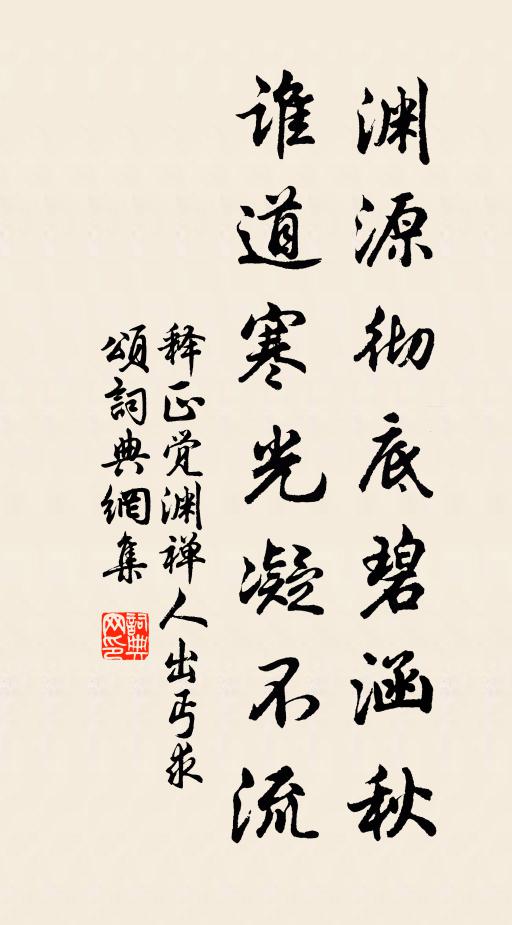 渊源彻底碧涵秋
谁道寒光凝不流
释正觉渊禅人出丐求
頌詞典網集
詞典
网印